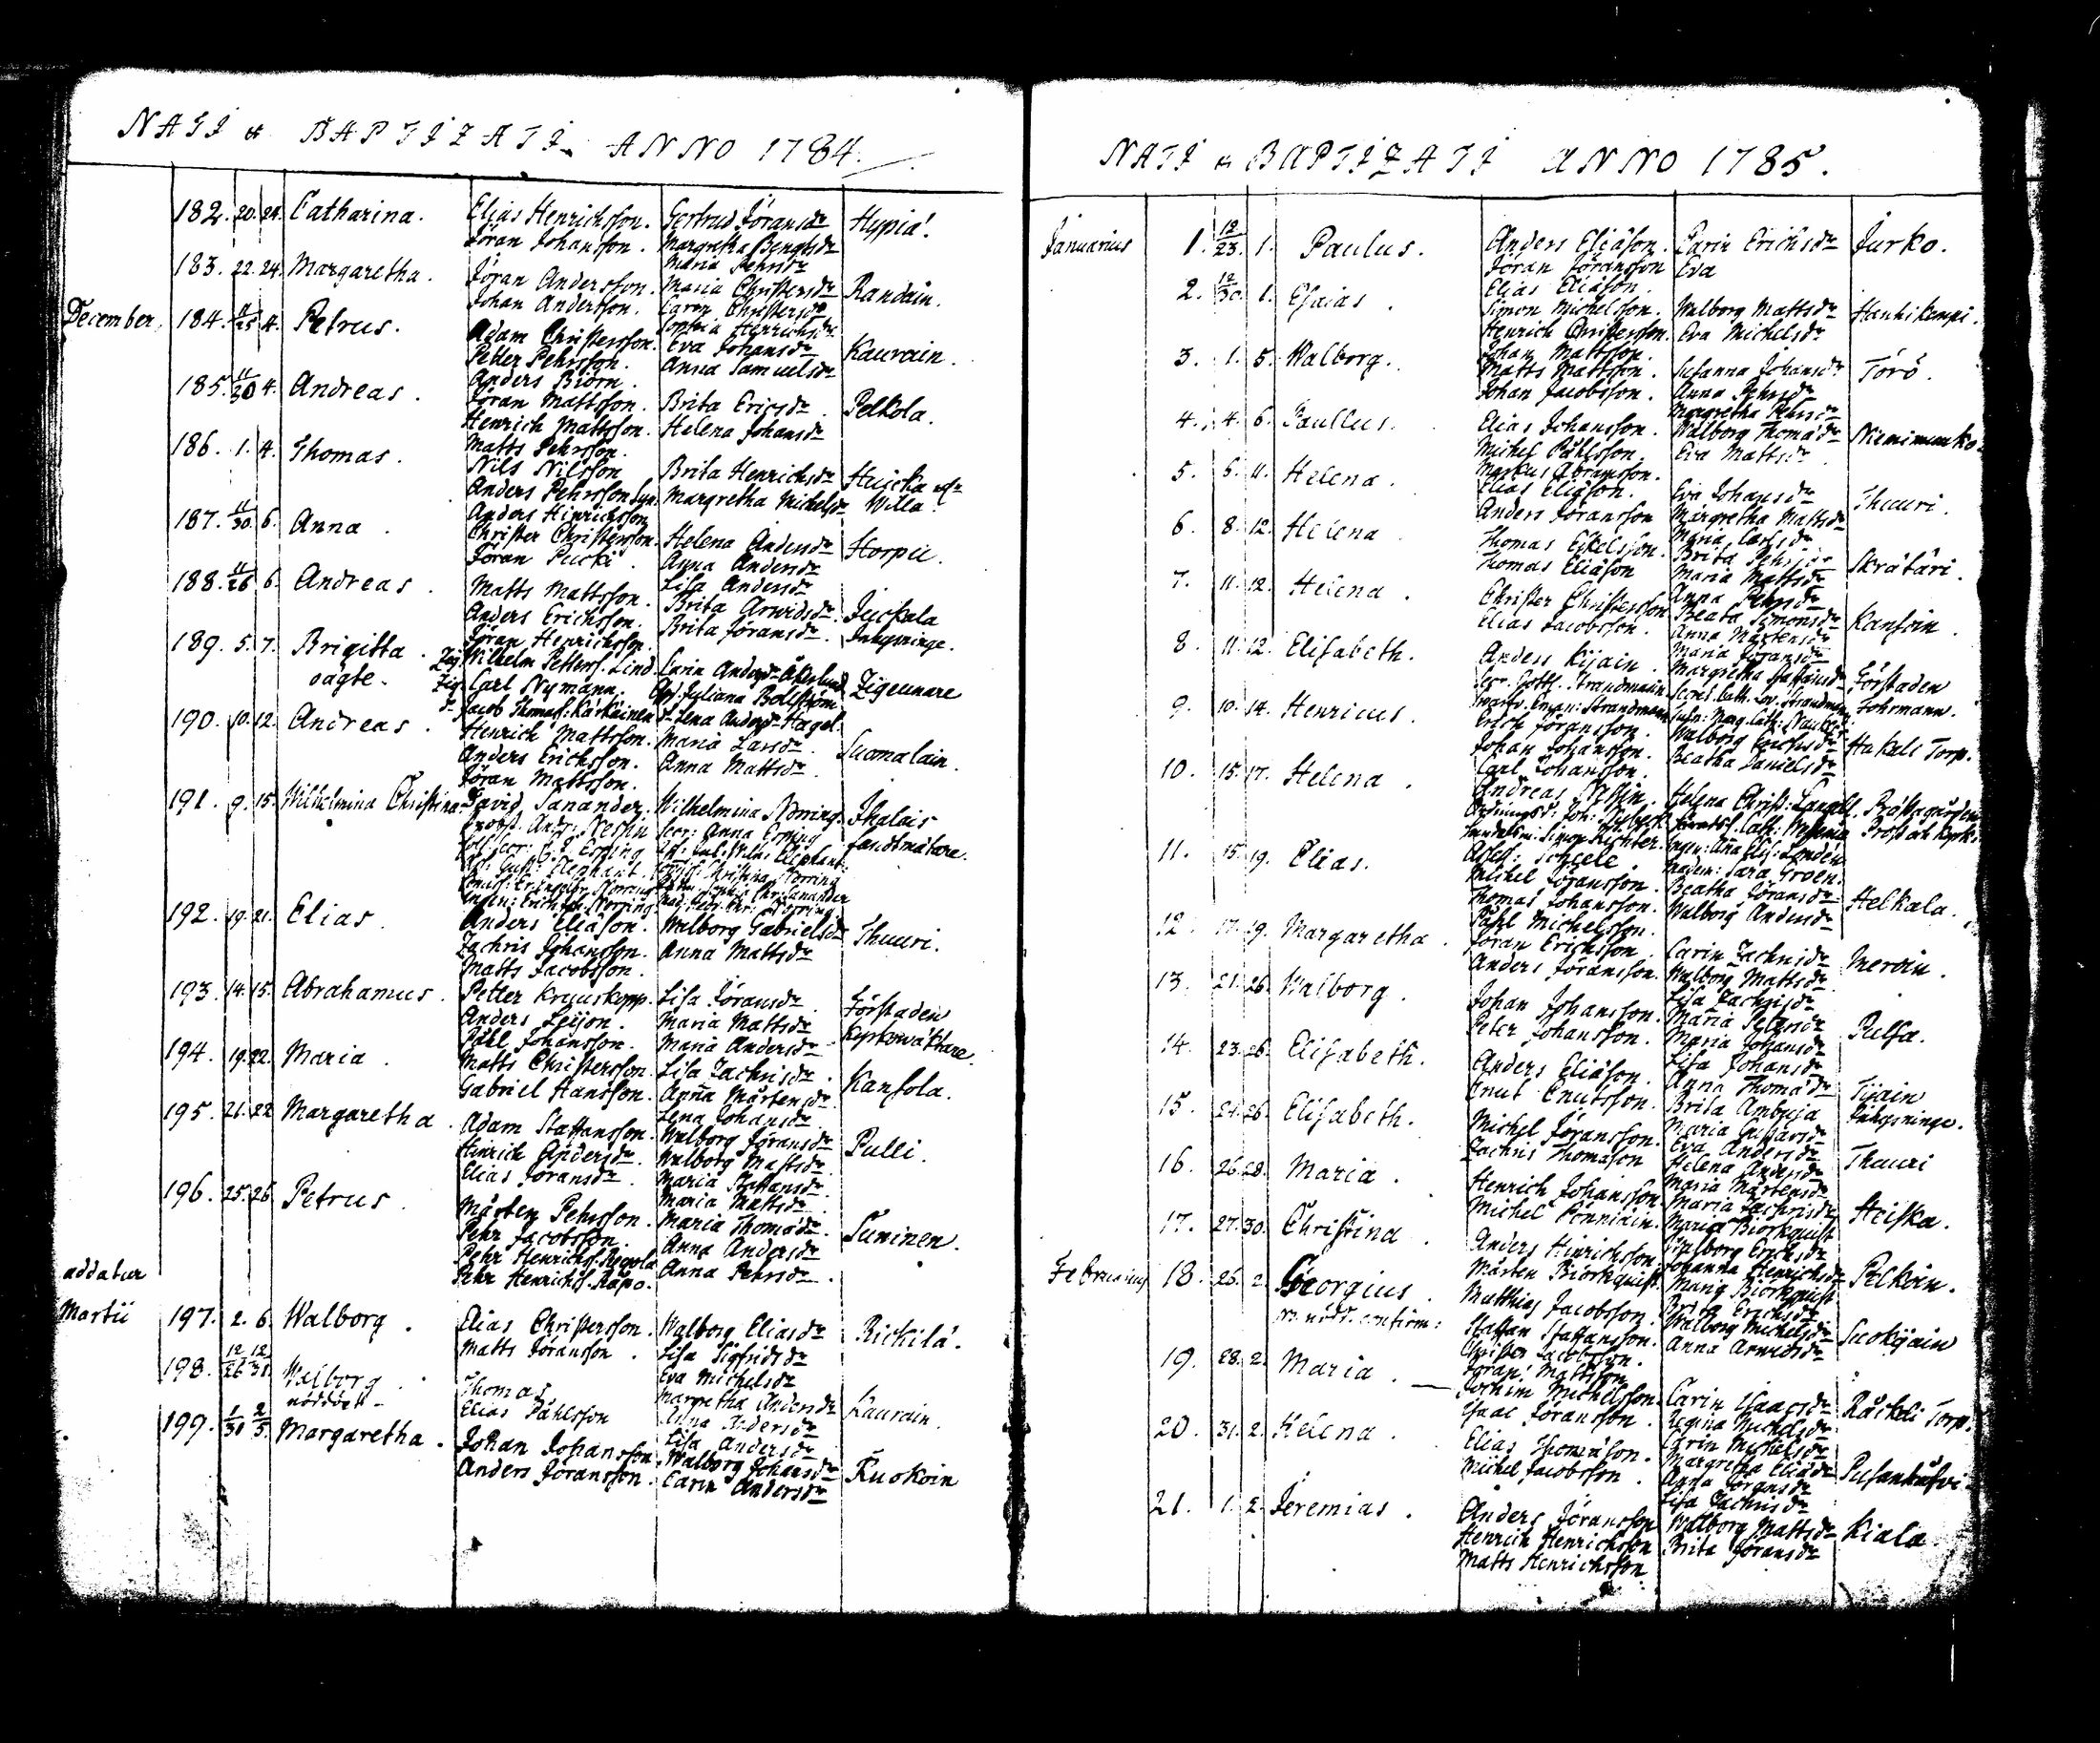 NATI & BAPTIZATI ANNO 1784.
182. 20. 24. Catharina. Elias Henrichsson. Gertrud Jöransdr Hypiä.
Jöran Johansson. Margretha Bengtsdr
Maria Pehrsdr
183. 22. 24. Margaretha. Jöran Andersson. Maria Christersdr Randain.
Johan Andersson. Carin Christersdr
Sophia Henrichsdr
December. 184. 11/25 4. Petrus. Adam Christersson. Eva Johansdr Kaurain.
Petter Pehrsson. Anna Samuelsdr
Anders Biörn.
185. 11/30 4. Andreas. Jöran Mattsson. Brita Ericsdr Pelkola.
Henrich Mattsson. Helena Johansdr
Matts Pehrsson.
186. 1. 4. Thomas. Nils Nilsson Brita Henrichsdr Huicka
Anders Pehrsson Margretha Michelsdr Willa.
Anders Hinrichsson
187. 11/30. 6. Anna. Christer Christersson. Helena Andersdr Horpu.
Jöran Pucki. Anna Andersdr
Lisa Andersdr
188. 11/26 6. Andreas. Matts Mattsson. Brita Arwidsdr. Juckala
Anders Erichsson. Brita Jöransdr. Inhysninge.
Jöran Henrichsson.
189. 5. 7. Brigitta. Zig Wilhelm Petterss. Lind. Carin Andersdr Åkerlund Zigeunare
oägte. Zig. Carl Nymann. Juliana Bollström
Jacob Thomass. Karkäinen Lena Andersdr Hagel.
190. 10. 12. Andreas. Henrich Mattsson. Maria Larsdr. Suomalain.
Anders Erichsson. Anna Mattsdr.
Jöran Mattsson.
191. 9. 15. Wilhelmina Christina. David Sanander. Wilhelmina Norring. Ihalais
Andr: Nesplin Anna Erving Landtmätare.
192. 19. 21. Elias. Anders Eliäson. Walborg Gabrielsdr Thuuri.
Zachris Johansson. Anna Mattsdr
Matts Jacobsson.
193. 14. 15. Abrahamus. Petter Kruuskopp. Lisa Jöransdr Förstaden
Anders Leijon. Maria Mattsdr Kyrkowäktare.
Påhl Johansson. Maria Andersdr
194. 19. 22. Maria. Matts Christersson. Lisa Zachrisdr. Kansola.
Gabriel Hansson. Anna Mårtensdr.
Lena Johansdr
195. 21. 22 Margaretha. Adam Staffansson. Walborg Jöransdr Pulli.
Hinrich Andersdr. Walborg Mattsdr
Elias Jöransdr. Maria Staffansdr.
Maria Mattsdr
196. 25. 26 Petrus. Mårten Pehrsson. Maria Thomädr. Suninen.
Pehr Jacobsson. Anna Andersdr
Pehr Henrichss. Anna Pehrsdr.
Pehr Henrichss. Räpo.
addatur
Martii 197. 2. 6. Walborg. Elias Christersson. Walborg Eliasdr Richilä.
Matts Jöransson. Lisa Sigfridsdr
Eva Michelsdr
198. 12/26 12/31. Walborg. Thomas Margretha Andersdr Kaurain.
nöddöpt Elias Påhlsson Anna Andersdr
Lisa Andersdr
199. 1/30 2/5. Margaretha. Johan Johansson. Walborg Johansdr Kuokoin
Anders Jöransson. Carin Andersdr
NATI & BAPTIZATI ANNO 1785.
Januarius 1. 12/23. 1. Paulus. Anders Eliäson. Carin Erichsdr Jurko.
Jöran Jöransson Eva
Elias Eliäson.
2. 12/30. 1. Esaias. Simon Michelsson. Walborg Mattsdr Hanhikempi.
Henrich Christersson. Eva Michelsdr
Johan Mattsson.
3. 1. 5. Walborg. Matts Mattsson. Susanna Johansdr Törö.
Johan Jacobsson. Anna Pehrsdr
Margretha Pehrsdr
4. 4. 6. Paullus. Elias Johansson. Walborg Thomädr Nieminenko.
Michel Påhlsson. Eva Mattsdr
Markus Abramsson.
5. 6. 11. Helena. Elias Eliäson. Eva Johansdr Thuuri.
Anders Jöransson Margretha Mattsdr
Maria Larsdr
6. 8. 12. Helena Thomas Eskelsson. Brita Pehrsdr Skrätäri.
Thomas Eliäson Maria Mattsdr
Anna Pehrsdr
7. 11. 12. Helena. Christer Christersson Beata Simonsdr Kansoin.
Elias Jacobsson. Anna Mårtensdr
Maria Jöransdr
8. 11. 12. Elisabeth. Anders Kijain. Margretha Staffansdr Förstaden
Strandmann Fohrmann.
9. 10. 14. Henricus. Erich Jöransson. Walborg Erichsdr Hakali Torp.
Johan Johansson. Beatha Danielsdr
Carl Johansson.
10. 15. 17. Helena. Andreas Nesplin. Helena Christ: Langell. Pråstagården
Simon Richter.
Scheele. Madem: Sara Groen.
11. 15. 19. Elias. Michel Jöransson. Beatha Jöransdr Helkala.
Thomas Johansson. Walborg Andersdr
Påhl Michelsson.
12. 17. 19. Margaretha. Jöran Erichsson Carin Zachrisdr Meroin.
Anders Jöransson. Walborg Mattsdr
Lisa Zachrisdr
13. 21. 26. Walborg. Johan Johansson. Maria Petersdr Pulsa.
Peter Johansson. Maria Johansdr
Lisa Johansdr
14. 23. 26. Elisabeth. Anders Eliäson. Anna Thomädr Tijain
Cnut Cnutsson. Brita Ambuja Inhysninge.
Maria Gustavsdr
15. 24. 26. Elisabeth. Michel Jöransson. Eva Andersdr Thuuri
Zachris Thomäson Helena Andersdr
Maria Mårtensdr
16. 26. 28. Maria. Henrich Johansson. Maria Zachrisdr Heiska.
Michel Ponniain. Maria Biörkquist
17. 27. 30. Christina. Anders Hinrichsson. Walborg Erichsdr Pelkoin.
Mårten Biörkquist. Johanna Henrichsdr
Maria Biörkquist
Februarius 18. 26. 2. Georgius. Matthias Jacobsson. Brita Erichsdr Suokijain
nödd. confirm: Staffan Staffansson. Walborg Michelsdr
Christer Jacobsson. Anna Arwidsdr
19. 28. 2. Maria. Jöran Mattsson
Jochim Michelsson. Carin Isaacsdr Räikeli Torp.
Isaac Jöransson. Regina Michelsdr
Carin Michelsdr
20. 31. 2. Helena. Elias Thomäson. Margretha Eliädr
Michel Jacobsson. Anna Jöransdr
Lisa Zachrisdr
21. 1. 2. Jeremias. Anders Jöransson Walborg Mattsdr Kiala
Henrich Henrichsson Brita Jöransdr
Matts Henrichsson